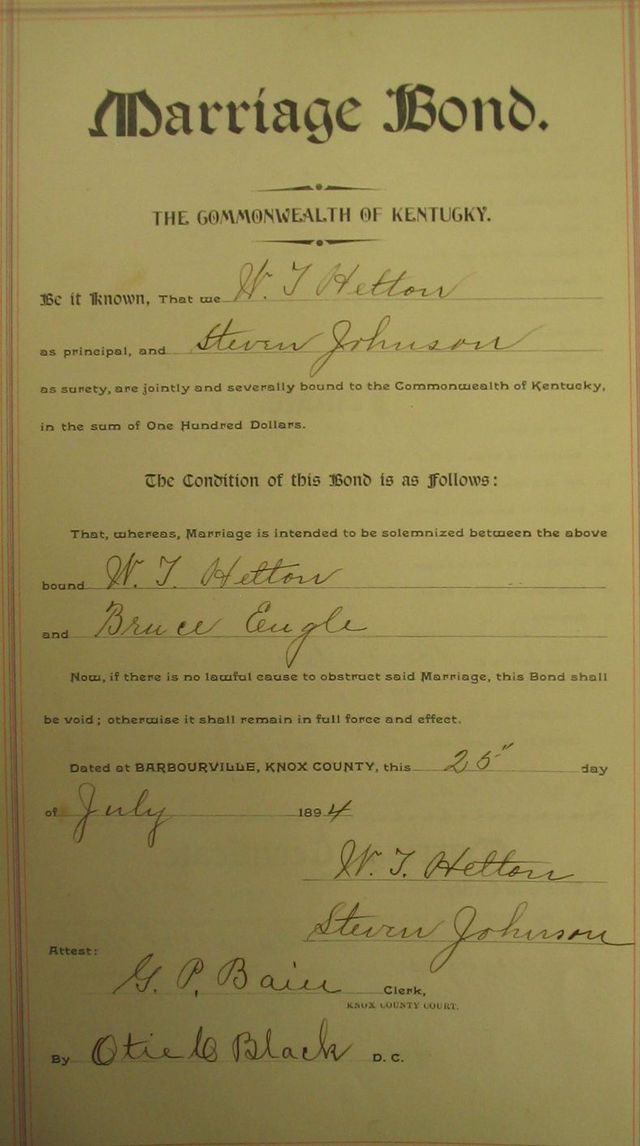 Marriage Bond.
THE COMMONWEALTH OF KENTUCKY.
Be it Known, That we W. T Helton
as principal, and Steven Johnson
as surety, are jointly and severally bound to the Commonwealth of Kentucky,
in the sum of One Hundred Dollars.
The Condition of this Bond is as Follows:
That, whereas, Marriage is intended to be solemnized between the above
bound W. T. Helton
and Bruce Engle
Now, if there is no lawful cause to obstruct said Marriage, this Bond shall
be void; otherwise it shall remain in full force and effect.
Dated at BARBOURVILLE, KNOX COUNTY, this 25" day
of July 1894
W. T. Helton
Steven Johnson
Attest:
G. P. Bain Clerk,
KNOX COUNTY COURT.
By Otie Black D. C.